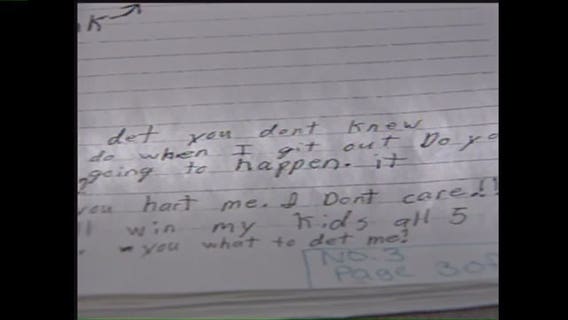 K →
det you dont know
do when I git out Do yo
going to happen. it
you hart me. I Dont care!!
win my Kids all 5
you what to det me?
No. 3
Page 3 of